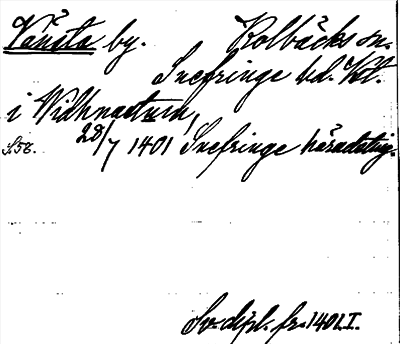 Vånsta by. Kolbäcks sn.
Snefringe hd. Vstl.
i Vidhnastum,
S. 58. 28/7 1401 Snefringe häradsting.
Sv. dipl. fr. 1401. I.